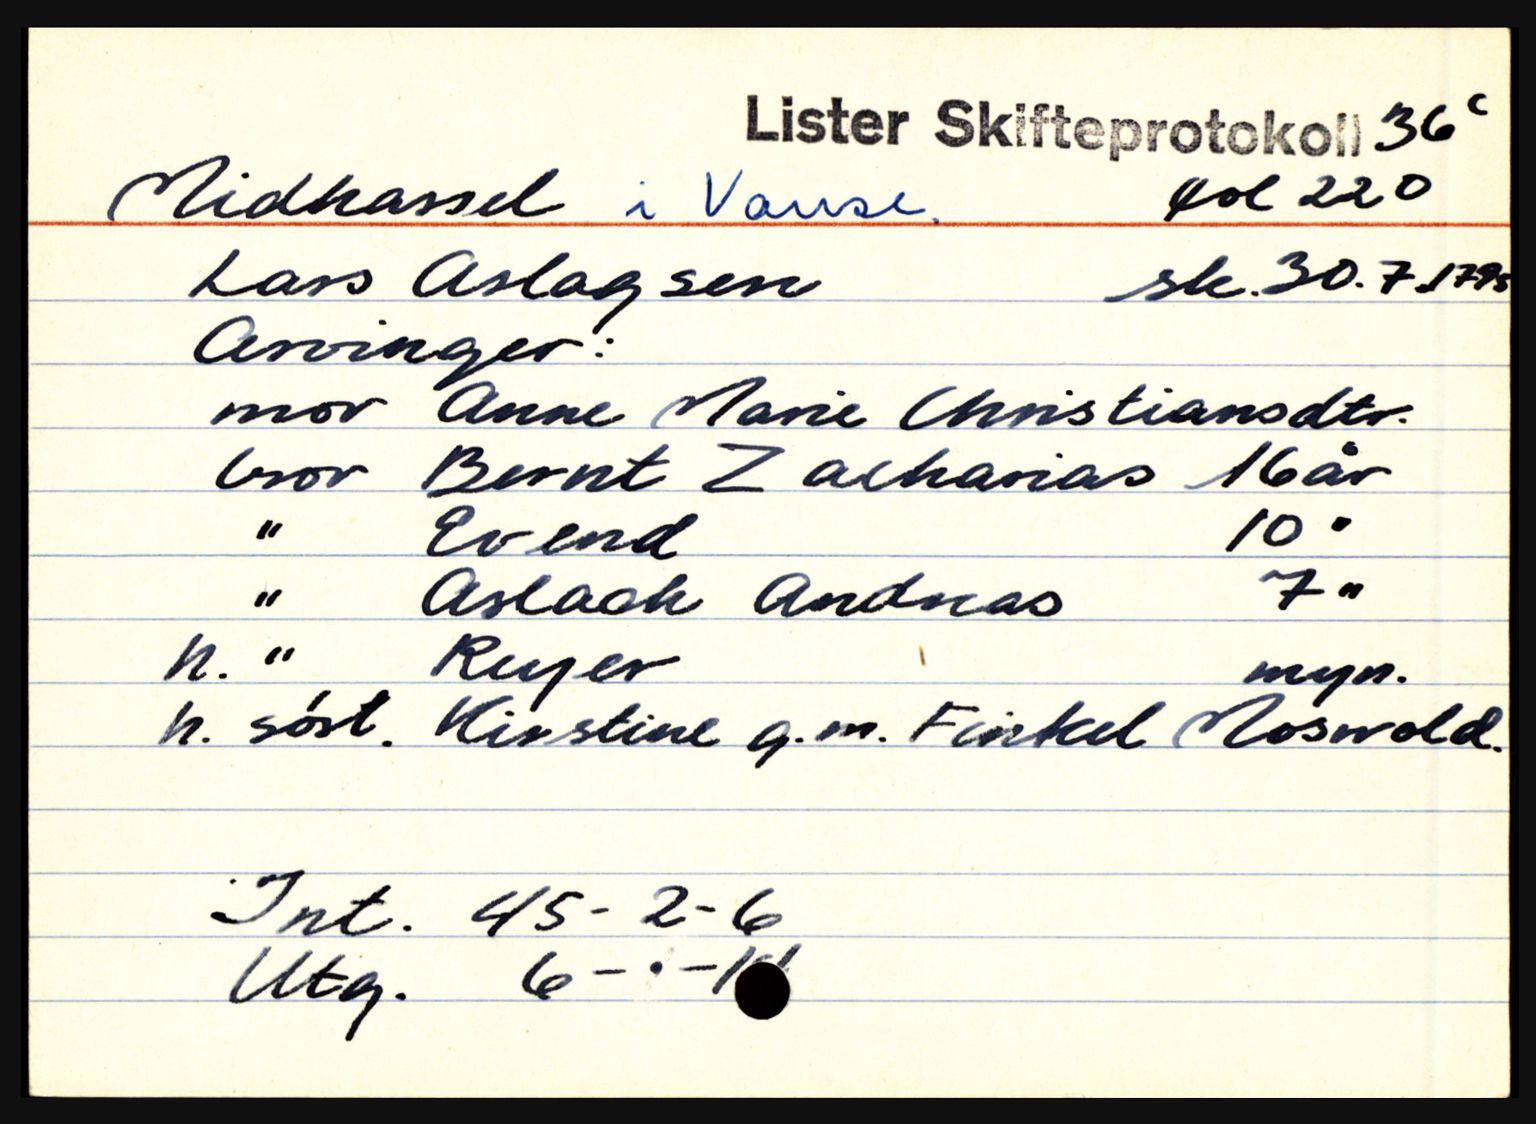 Lister Skifteprotokoll 36 c
Midhassel i Vanse. fol 220
Lars Aslagsen sk. 30.7.1795
Arvinger:
mor Anne Marie Christiansdtr.
bror Bernt Zacharias 16 år
" Evend 10 "
" Aslach Andreas 7 "
h. " Reyer myn.
h. søst. Kirstine g.m. Finkel Moswold.
Int. 45-2-6
Utg. 6-·-